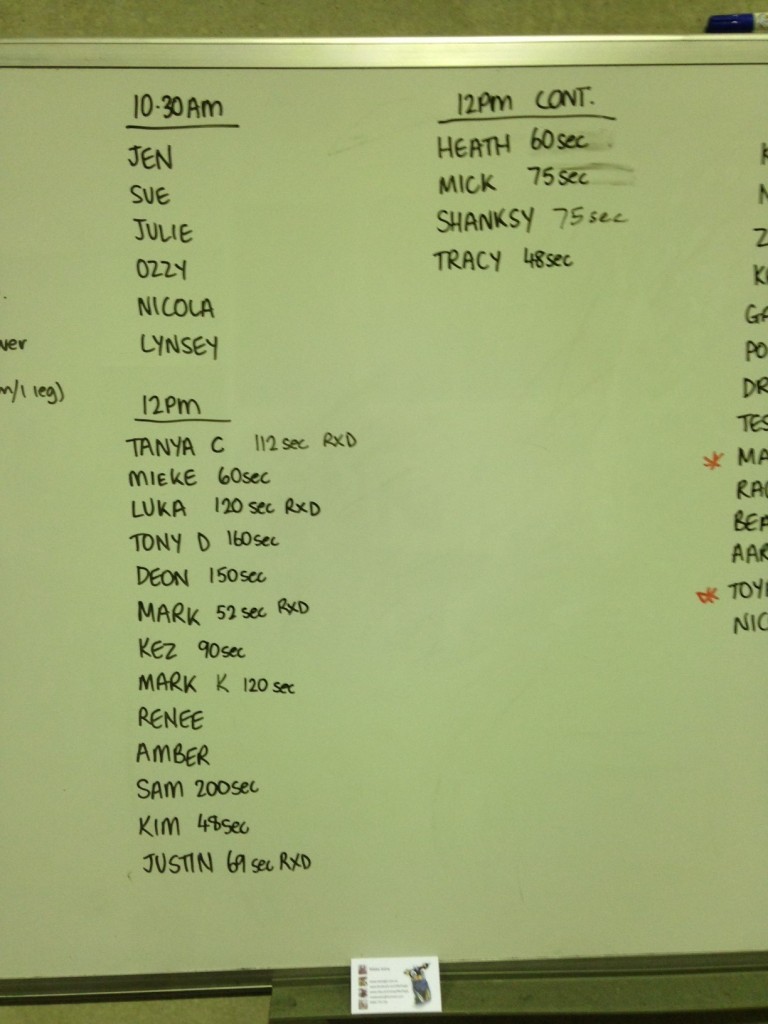 10.30AM
JEN
SUE
JULIE
OZZY
NICOLA
LYNSEY
12PM
TANYA C 112sec RXD
MIEKE 60sec
LUKA 120sec RXD
TONY D 160sec
DEON 150sec
MARK 52sec RXD
KEZ 90sec
MARK K 120sec
RENEE
AMBER
SAM 200sec
KIM 48sec
JUSTIN 69sec RXD
12PM CONT.
HEATH 60sec
MICK 75sec
SHANKSY 75sec
TRACY 48sec
ver
m/1 leg)
K
N
Z
K
GR
PO
DR
TES
* MA
RAC
BEA
AAR
* TOY
NIC